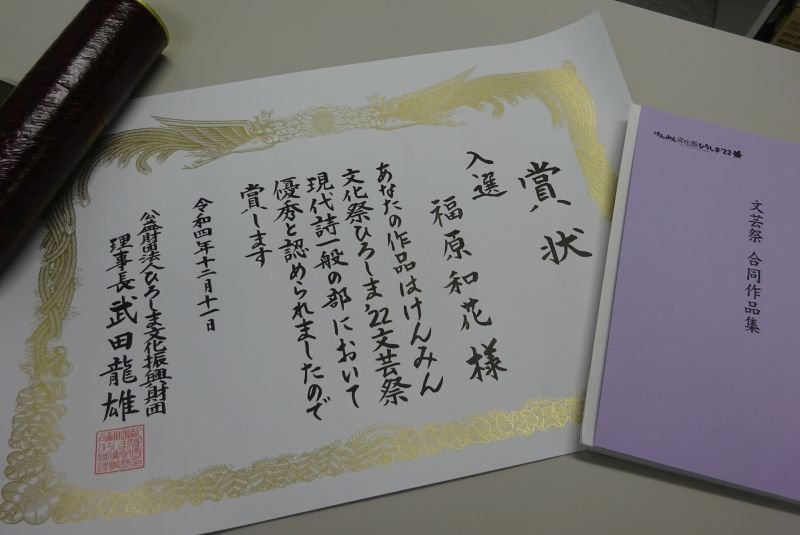 賞状
入選
福原和花 様
あなたの作品はけんみん
文化祭ひろしま'22文芸祭
現代詩一般の部において
優秀と認められましたので
賞します
令和四年十二月十一日
公益財団法人ひろしま文化振興財団
理事長 武田龍雄
けんみん文化祭ひろしま'22
文芸祭 合同作品集